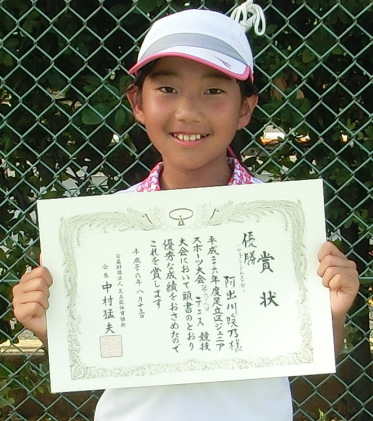 賞状
優勝
阿出川 咲乃 様
平成二十六年度足立区ジュニア
スポーツ大会 テニス 競技
大会において頭書のとおり
優秀な成績をおさめたので
これを賞します
平成二十六年八月十三日
公益財団法人足立区体育協会
会長 中村猛夫